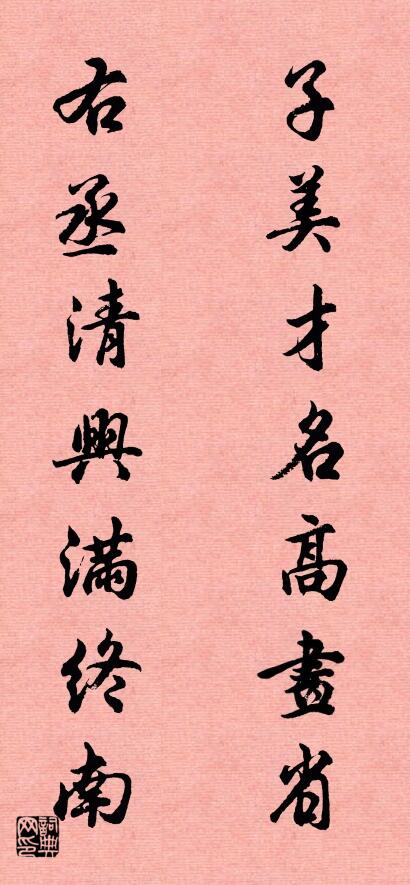 子美才名高畫省
右丞清興滿終南
詞典网印